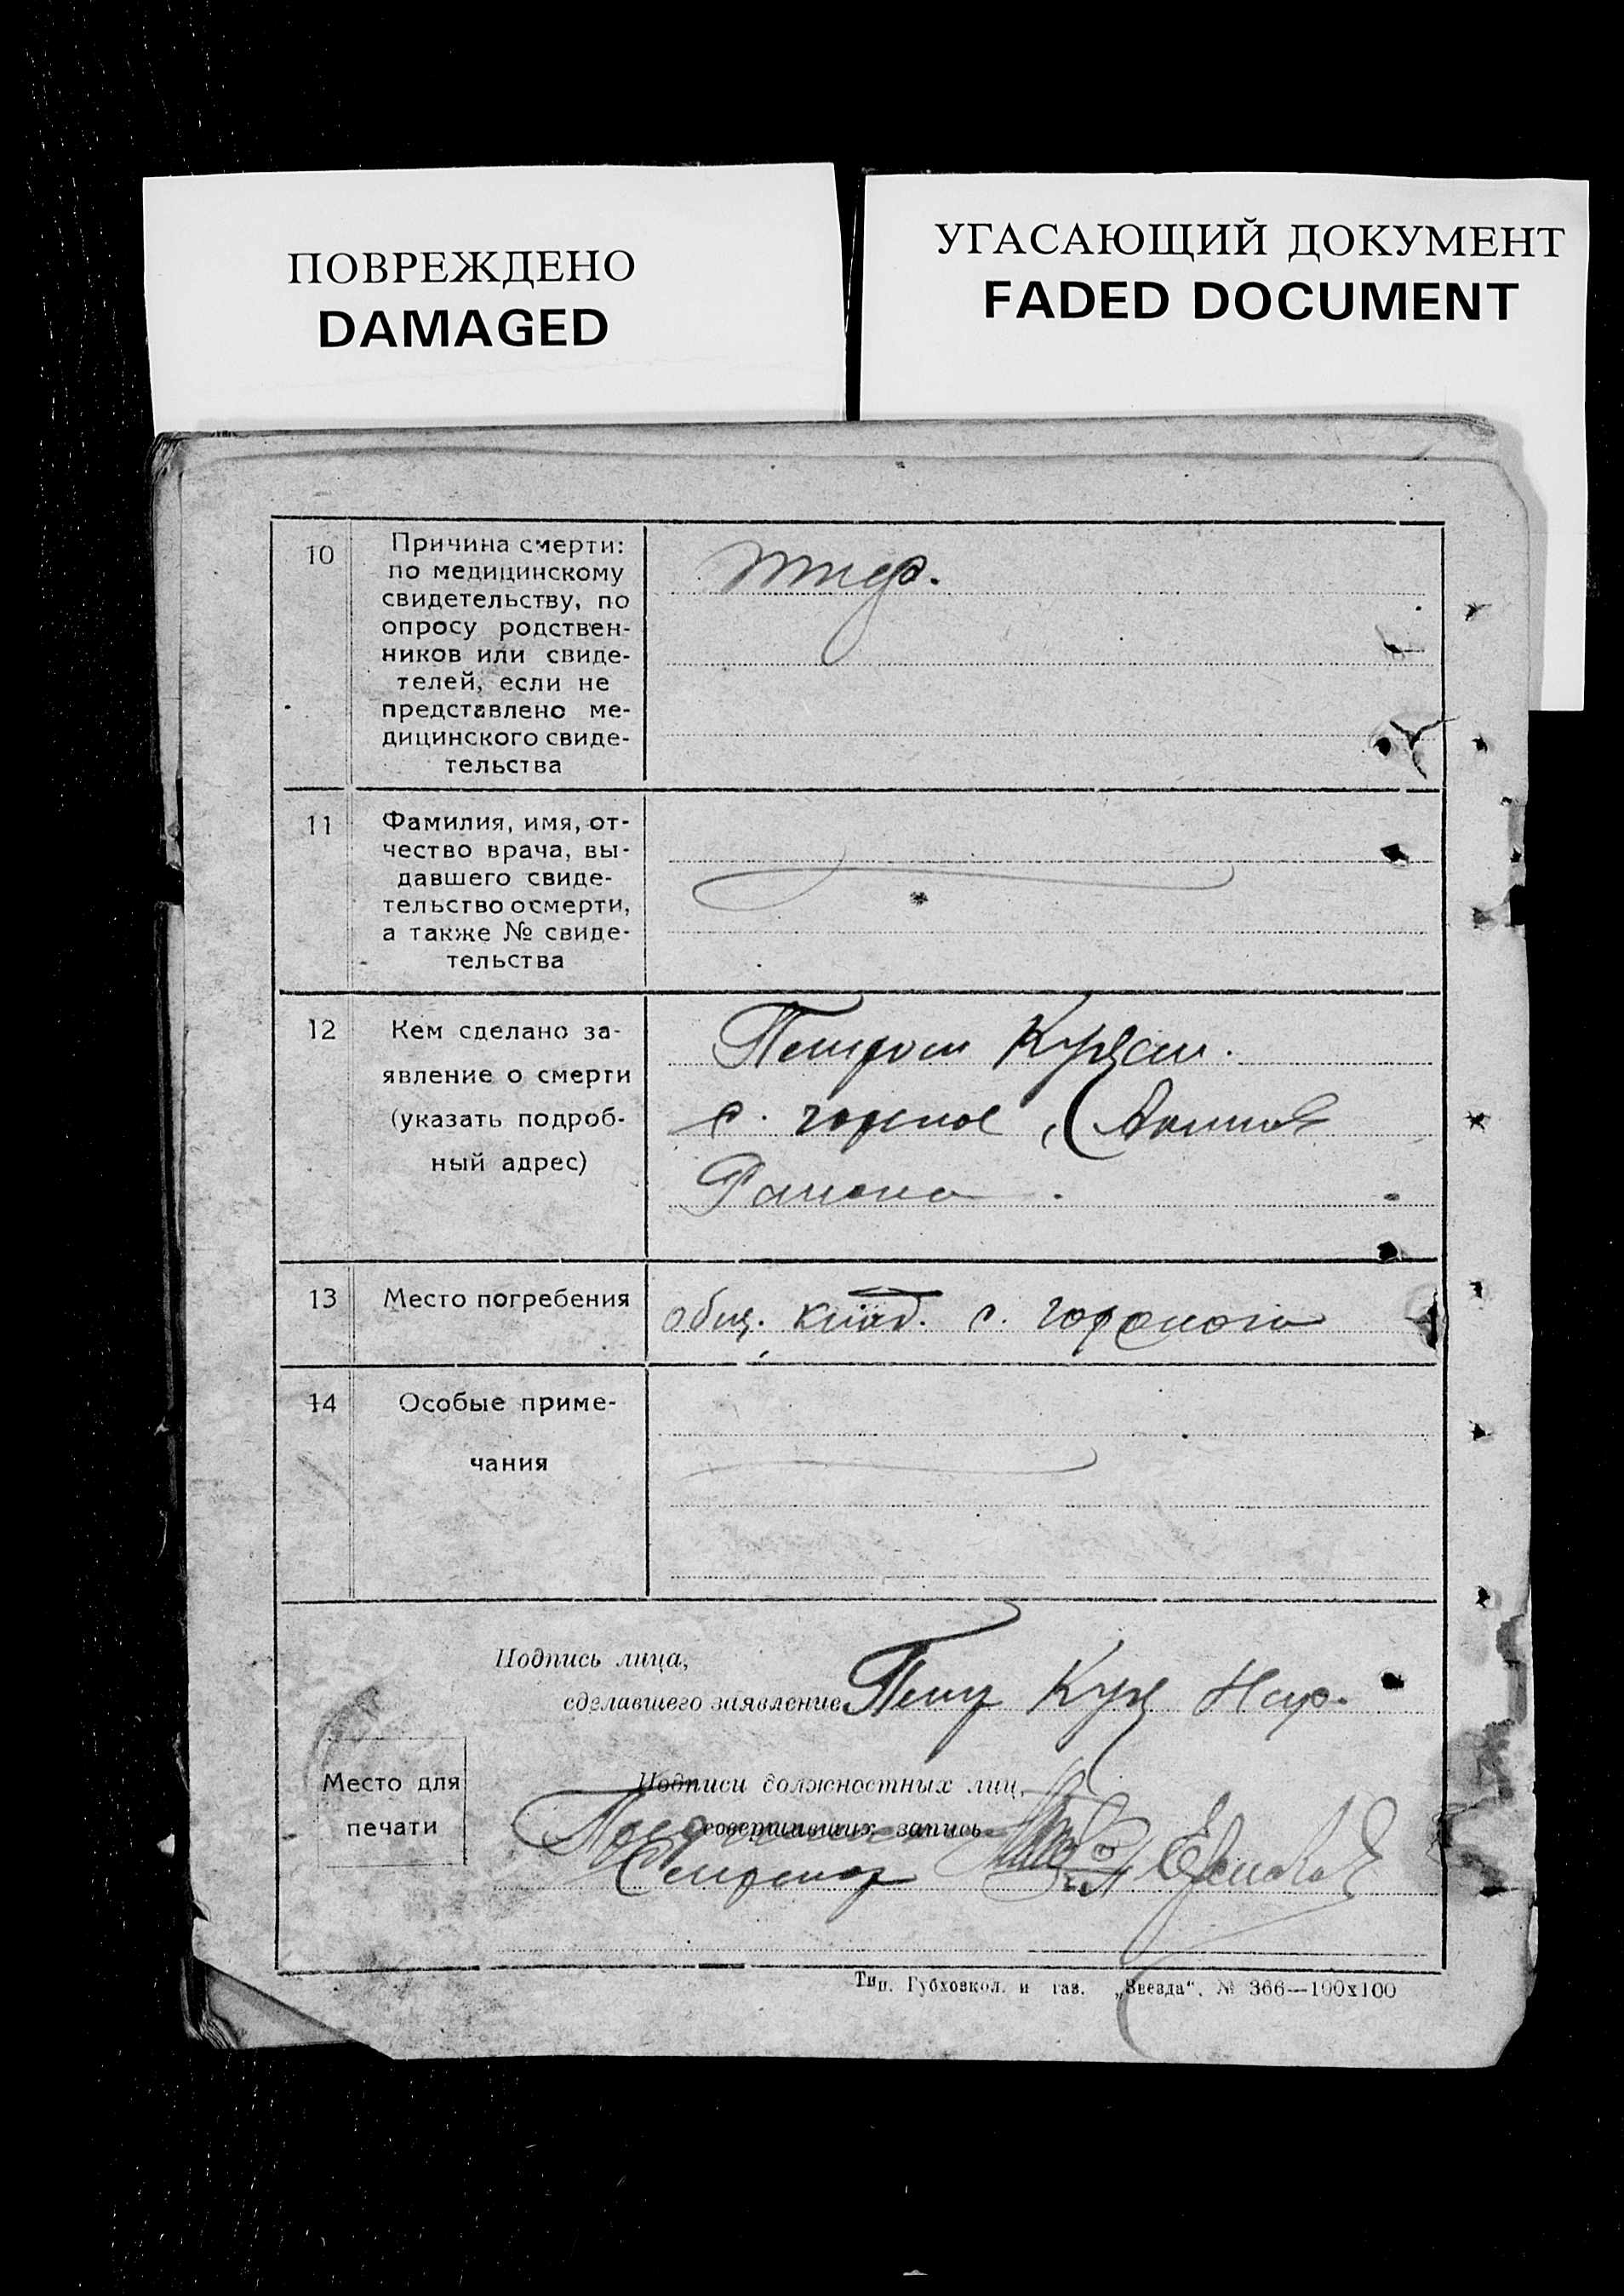 ПОВРЕЖДЕНО
DAMAGED
УГАСАЮЩИЙ ДОКУМЕНТ
FADED DOCUMENT
10
Причина смерти:
по медицинскому
свидетельству, по
опросу родствен-
ников или свиде-
телей, если не
представлено ме-
дицинского свиде-
тельства
тиф.
11
Фамилия, имя, от-
чество врача, вы-
давшего свиде-
тельство о смерти,
а также № свиде-
тельства
12
Кем сделано за-
явление о смерти
(указать подроб-
ный адрес)
Петром
с. горное,
Района
13
Место погребения
общ. клад. с. горного
14
Особые приме-
чания
Подпись лица,
сделавшего заявление
Место для
печати
Подписи должностных лиц,
совершивших запись
Секретар
Тип. Губхозкол. и газ. „Звезда“. № 366—100х100